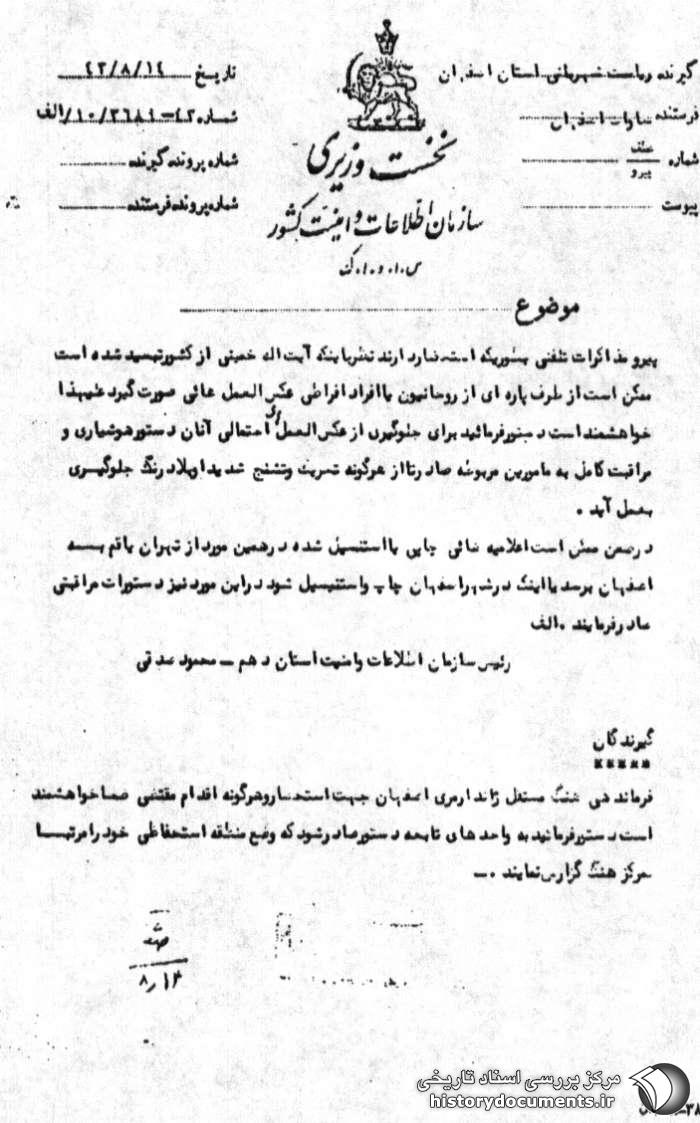 گیرنده ریاست شهربانی استان اصفهان
فرستنده ساواک اصفهان
شماره
عطف
پیرو
پیوست
نخست وزیری
سازمان اطلاعات و امنیت کشور
س.ا.و.ا.ک
تاریخ ۴۳/۸/۱۴
شماره ۴۲-۳۶۸۱/۱۰/الف
شماره پرونده گیرنده
شماره پرونده فرستنده
موضوع
پیرو مذاکرات تلفنی بطوریکه استحضار دارند نظر باینکه آیت اله خمینی از کشور تبعید شده است
ممکن است از طرف پاره ای از روحانیون یا افراد افراطی عکس العمل هائی صورت گیرد علیهذا
خواهشمند است دستور فرمائید برای جلوگیری از عکس العمل احتمالی آنان دستور هوشیاری و
مراقبت کامل به مامورین مربوطه صادر تا از هرگونه تحریک و تشنج شدیدا و بلادرنگ جلوگیری
بعمل آید .
در ضمن ممکن است اعلامیه هائی چاپی یا استنسیل شده در همین مورد از تهران یا قم به
اصفهان برسد یا اینکه در شهر اصفهان چاپ و استنسیل شود در این مورد نیز دستورات مراقبتی
صادر فرمایند . الف
رئیس سازمان اطلاعات و امنیت استان دهم – محمود صدقی
گیرندگان
*****
فرماندهی هنگ مستقل ژاندارمری اصفهان جهت استحضار و هرگونه اقدام مقتضی ضمنا خواهشمند
است دستور فرمائید به واحد های تابعه دستور صادر شود که وضع منطقه استحفاظی خود را مرتبا
بمرکز هنگ گزارش نمایند .–
۸/۱۴
مرکز بررسی اسناد تاریخی
historydocuments.ir